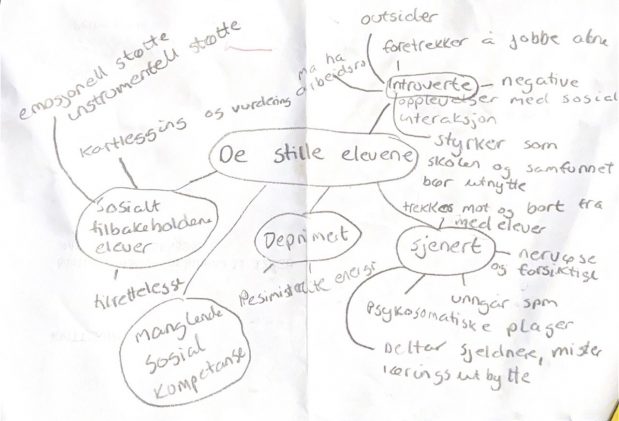 outsider
foretrekker å jobbe alne
må ha
arbeidsro
Introverte
negative
opplevelser med sosial
interaksjon
styrker som
skolen og samfunnet
bør utnytte
emosjonell støtte
instrumentell støtte
Kartlegging og vurdering
De stille elevene
sosialt
tilbakeholdene
elever
tilrettelegge
manglende
sosial
kompetanse
Deprimert
Pesimistisk
energi
trekkes mot og bort fra
medelever
Sjenert
nervøse
og forsiktige
unngår spm
Psykosomatiske plager
Deltar sjeldnere, mister
læringsutbytte